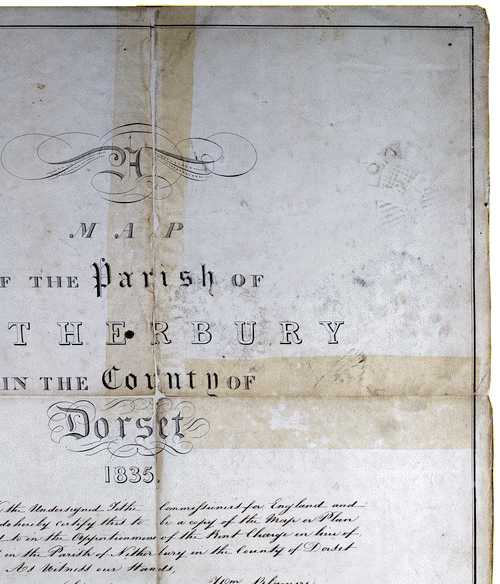 A
MAP
F THE Parish OF
THERBURY
IN THE County OF
Dorset
1835.
the Undersigned Tithe Commissioners for England and
do hereby certify this to be a copy of the Map or Plan
to in the Apportionment of the Rent Charge in lieu of
in the Parish of Netherbury in the County of Dorset
As Witness our Hands,
Wm Blamire